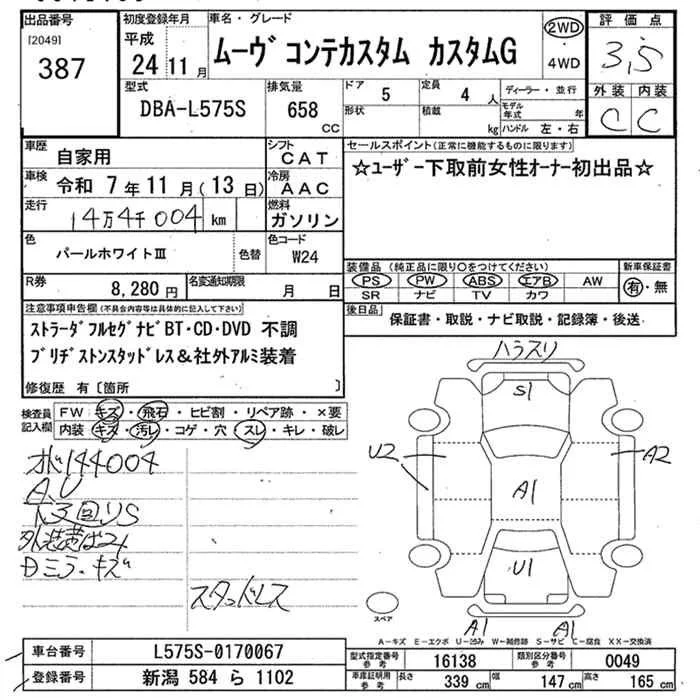 出品番号
[2049]
387
初度登録年月
平成
24 11 月
車名・グレード
ムーヴ コンテカスタム カスタムG
2WD
・4WD
評価点
3,5
外装 内装
C C
型式
DBA-L575S
排気量
658
CC
ドア
5
定員
4 人
形状
積載
kg
ディーラー・並行
モデル年式 年
ハンドル 左・右
車歴
自家用
シフト
CAT
車検
令和 7年11月(13日)
冷房
AAC
走行
14万4千004 km
燃料
ガソリン
色
パールホワイトⅢ
色替
色コード
W24
R券
8,280 円
名変通知期限
月 日
セールスポイント(正常に機能するものに限ります)
☆ユーザー下取前女性オーナー初出品☆
装備品 (純正品に限り〇をつけてください)
PS PW ABS エアB AW
SR ナビ TV カワ
新車保証書
有・無
後日品
保証書・取説・ナビ取説・記録簿・後送
注意事項申告欄(不具合内容等は具体的に記入して下さい)
ストラーダフルセグナビBT・CD・DVD 不調
ブリヂストンスタッドレス&社外アルミ装着
修復歴 有〔箇所 〕
検査員記入欄
FW キズ・飛石・ヒビ割・リペア跡・×要
内装 キズ・汚レ・コゲ・穴・スレ・キレ・破レ
144004
A、U
下回りS
ミラーキズ
スタッドレス
ハラスリ
S1
U2
A2
A1
U1
A1
A1
スペア
A−キズ E−エクボ U−凹み W−補修跡 S−サビ C−腐食 XX−交換済
車台番号
L575S-0170067
登録番号
新潟 584 ら 1102
型式指定番号
参考
16138
類別区分番号
参考
0049
車庫証明用
参考
長さ
339 cm
幅
147 cm
高さ
165 cm